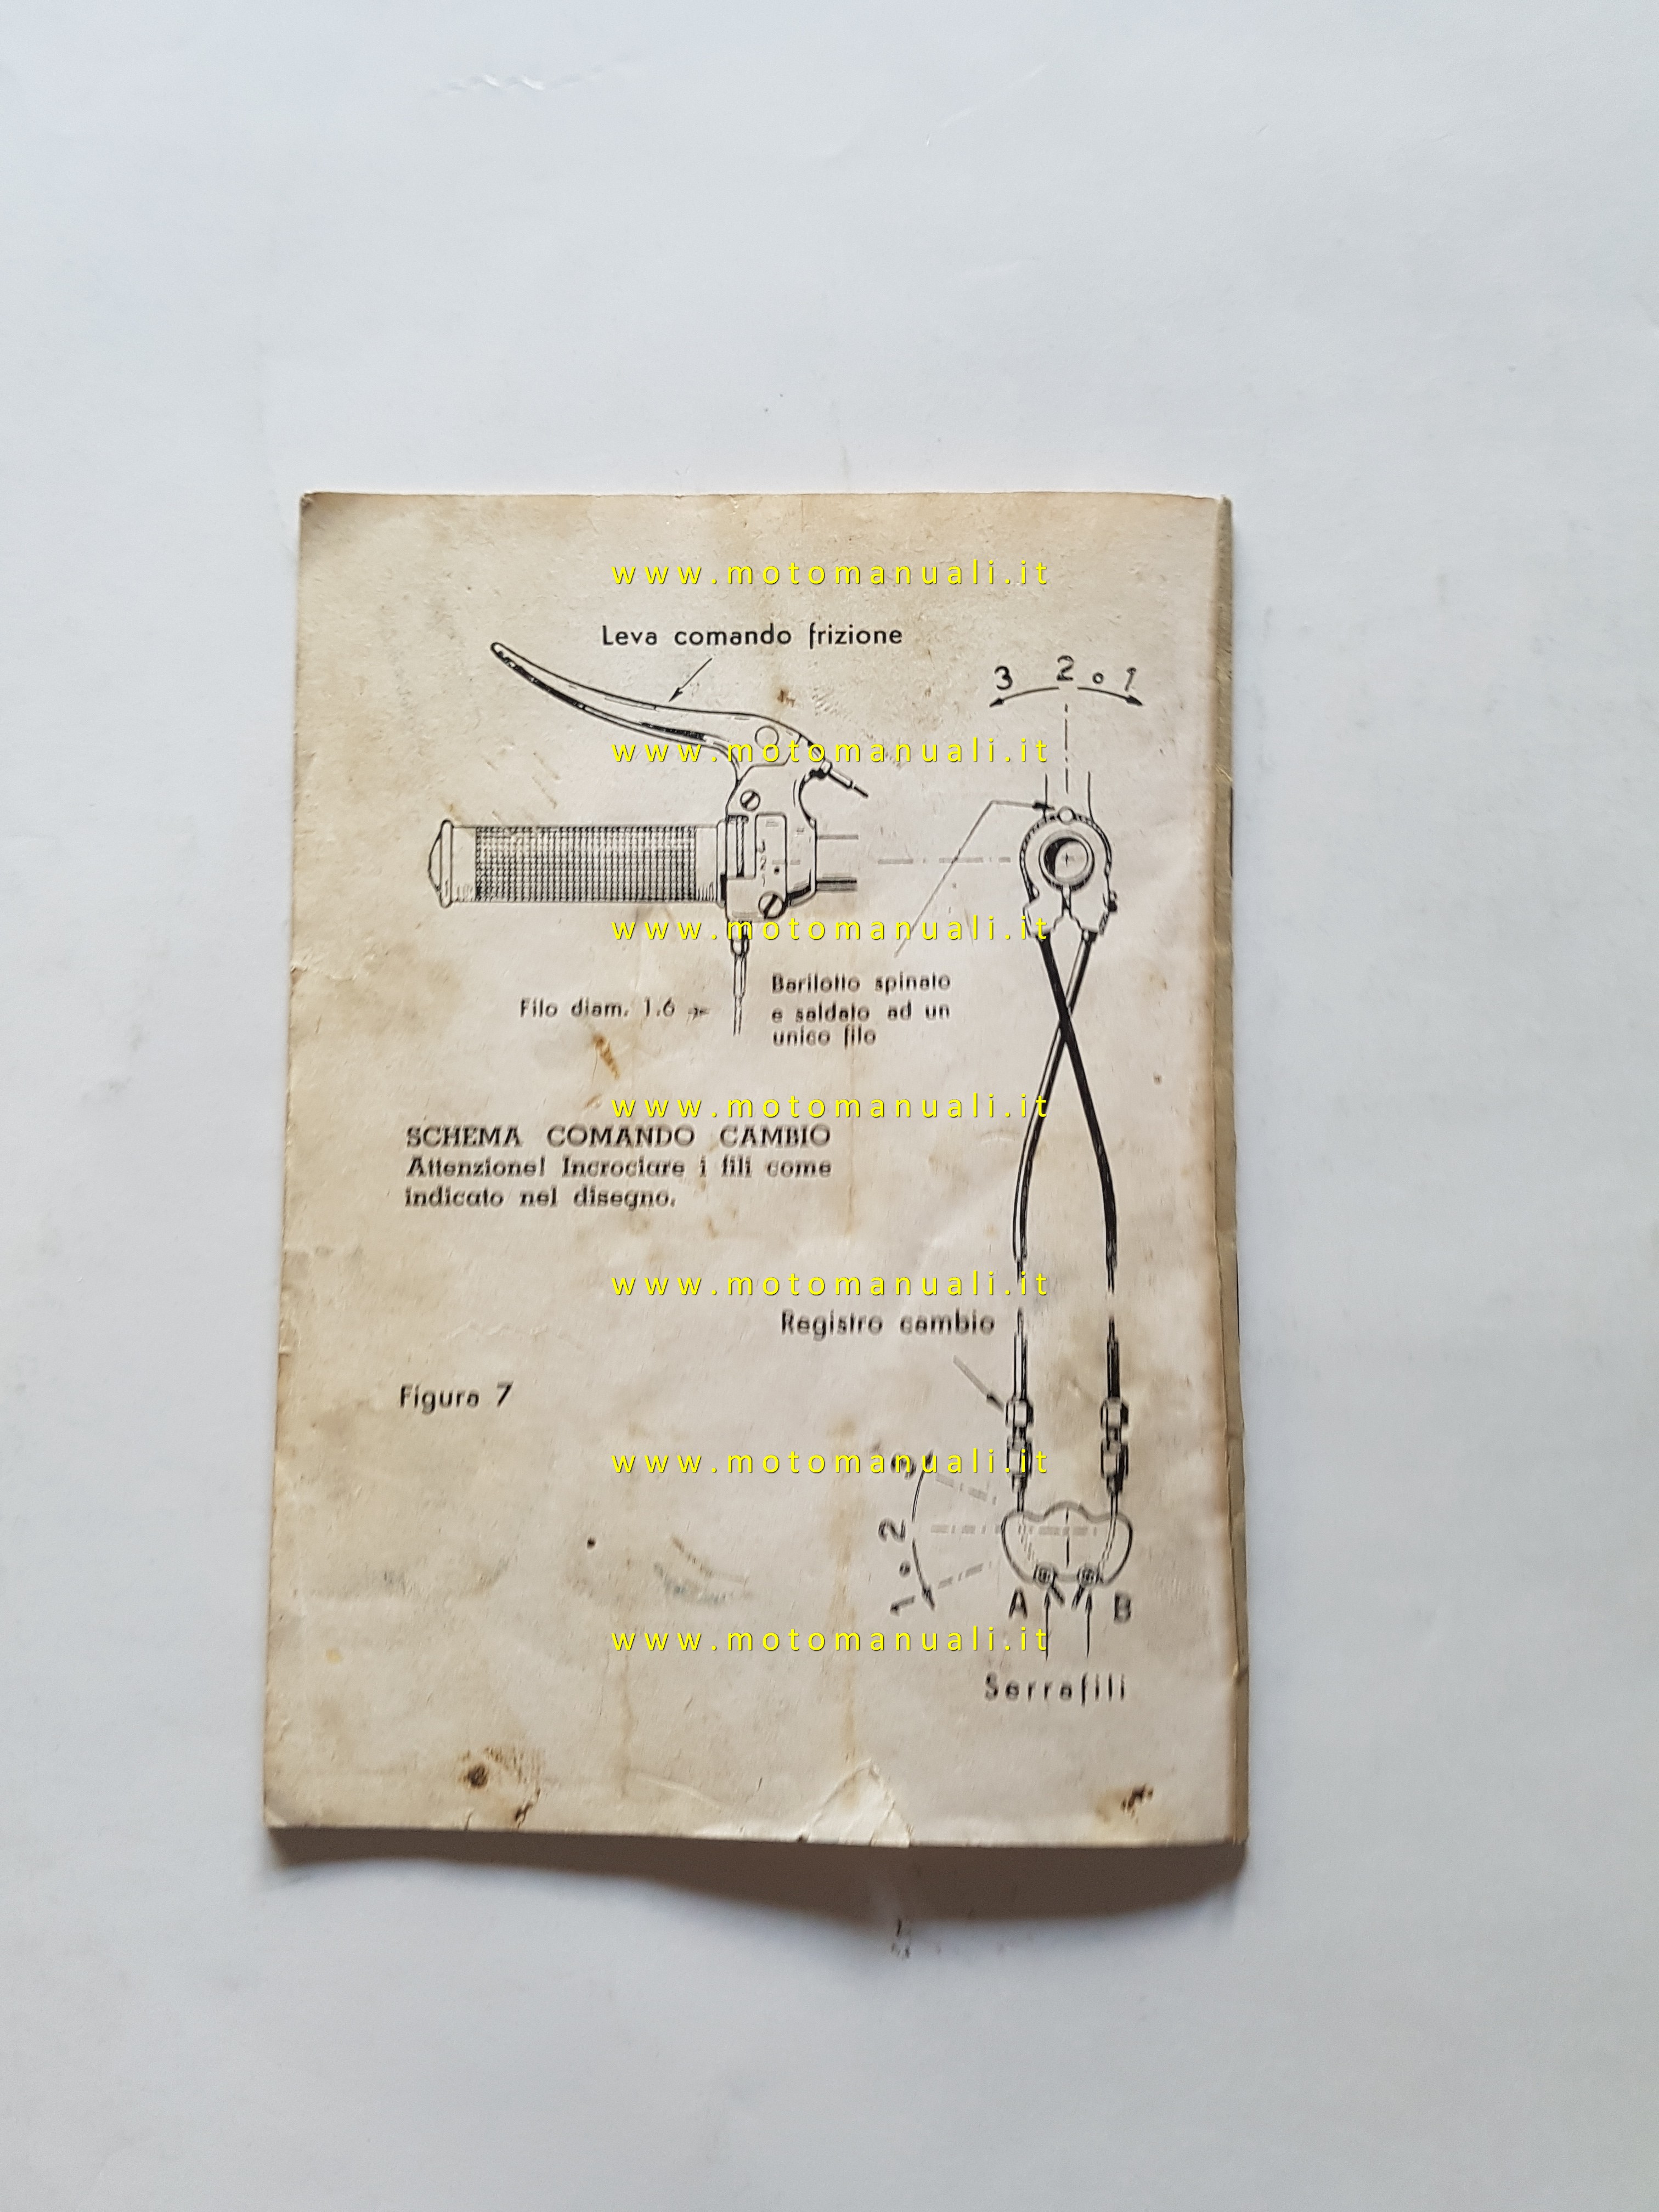 www.motomanuali.it
Leva comando frizione
3 2 o 1
www.motomanuali.it
3
2
1
www.motomanuali.it
Barilotto spinato
e saldato ad un
unico filo
Filo diam. 1.6
www.motomanuali.it
SCHEMA COMANDO CAMBIO
Attenzione! Incrociare i fili come
indicato nel disegno.
www.motomanuali.it
Registro cambio
Figura 7
www.motomanuali.it
1 o 2 3
A B
www.motomanuali.it
Serrafili